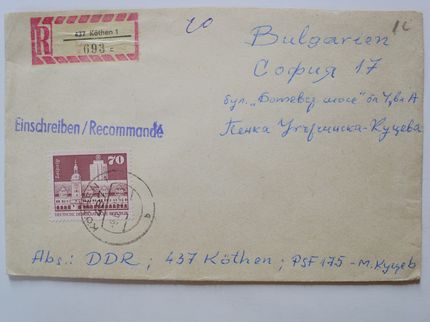 20
12
R
437 Köthen 1
693 c
Bulgarien
София 17
бул. „Ботевградско шосе" бл
Пенка Кушева
Einschreiben/Recommandé
Leipzig
70
DEUTSCHE DEMOKRATISCHE REPUBLIK
KÖTHEN
a
Abs.: DDR, 437 Köthen, PSF 175 - М. Куцев